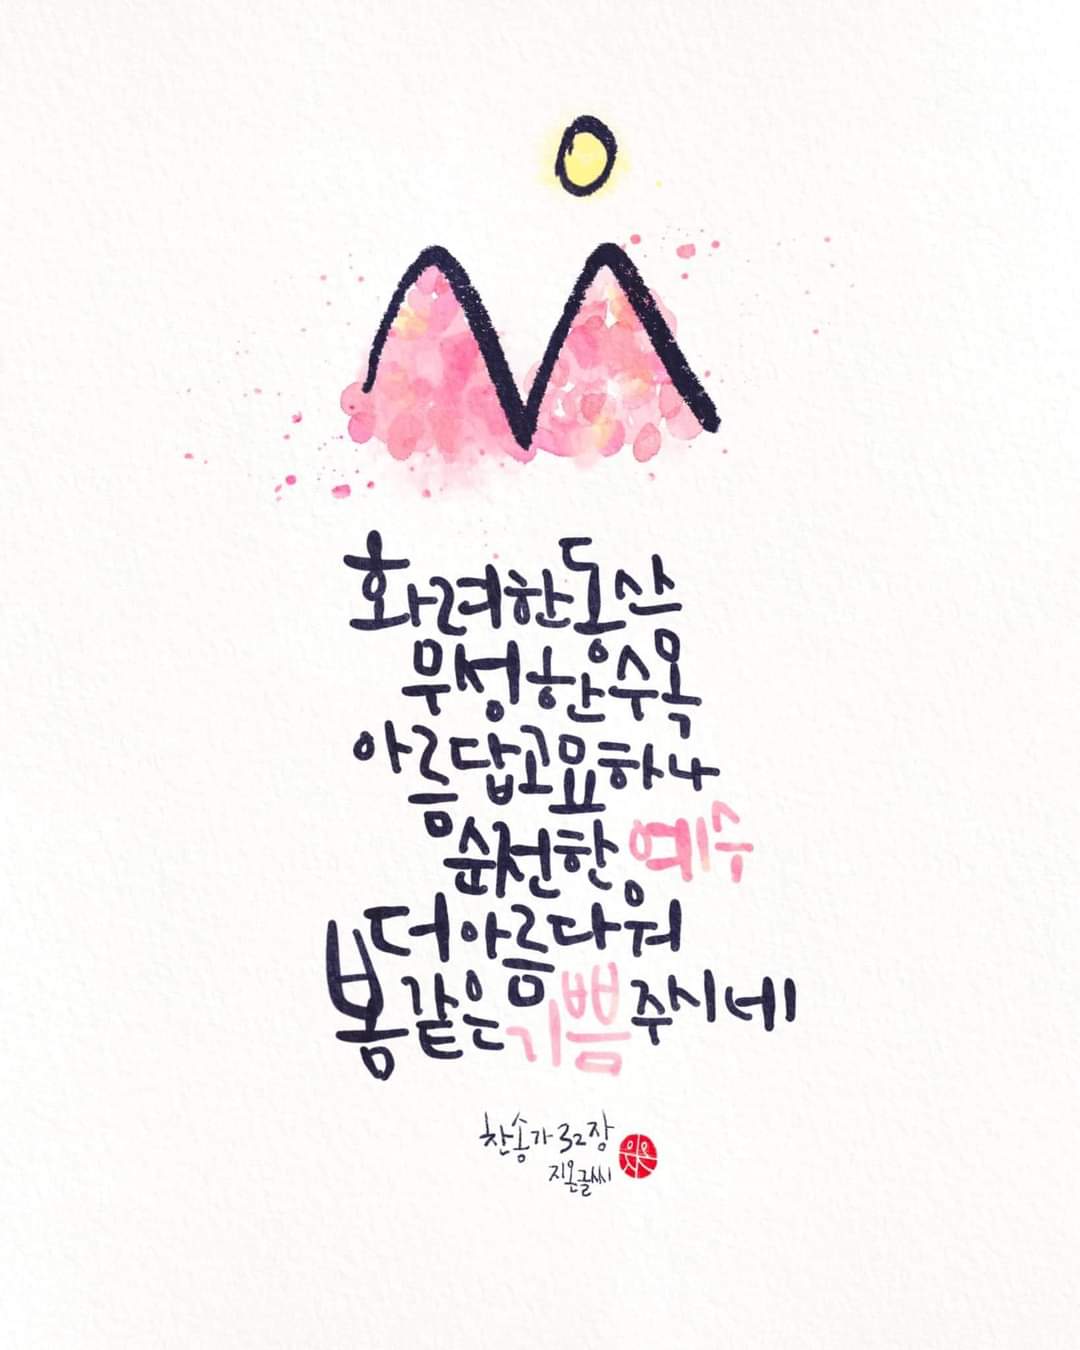 화려한동산
무성한수목
아름답고묘하나
순전한예수
더아름다워
봄같은기쁨주시네
찬송가32장
지온글씨